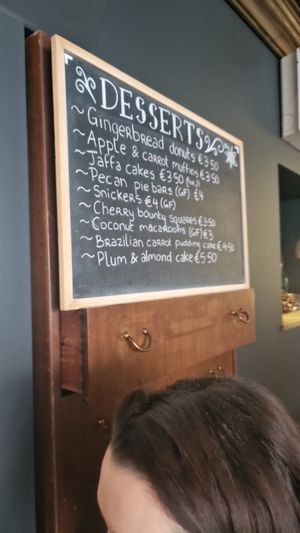 DESSERTS
~Gingerbread donuts €3.50
~Apple & carrot muffins €3.50
~Jaffa cakes €3.50 (for 2)
~Pecan pie bars (GF) €4
~Snickers €4 (GF)
~Cherry bounty squares €3.50
~Coconut macaroons (GF) €3
~Brazilian carrot pudding cake €4.50
~Plum & almond cake €5.50